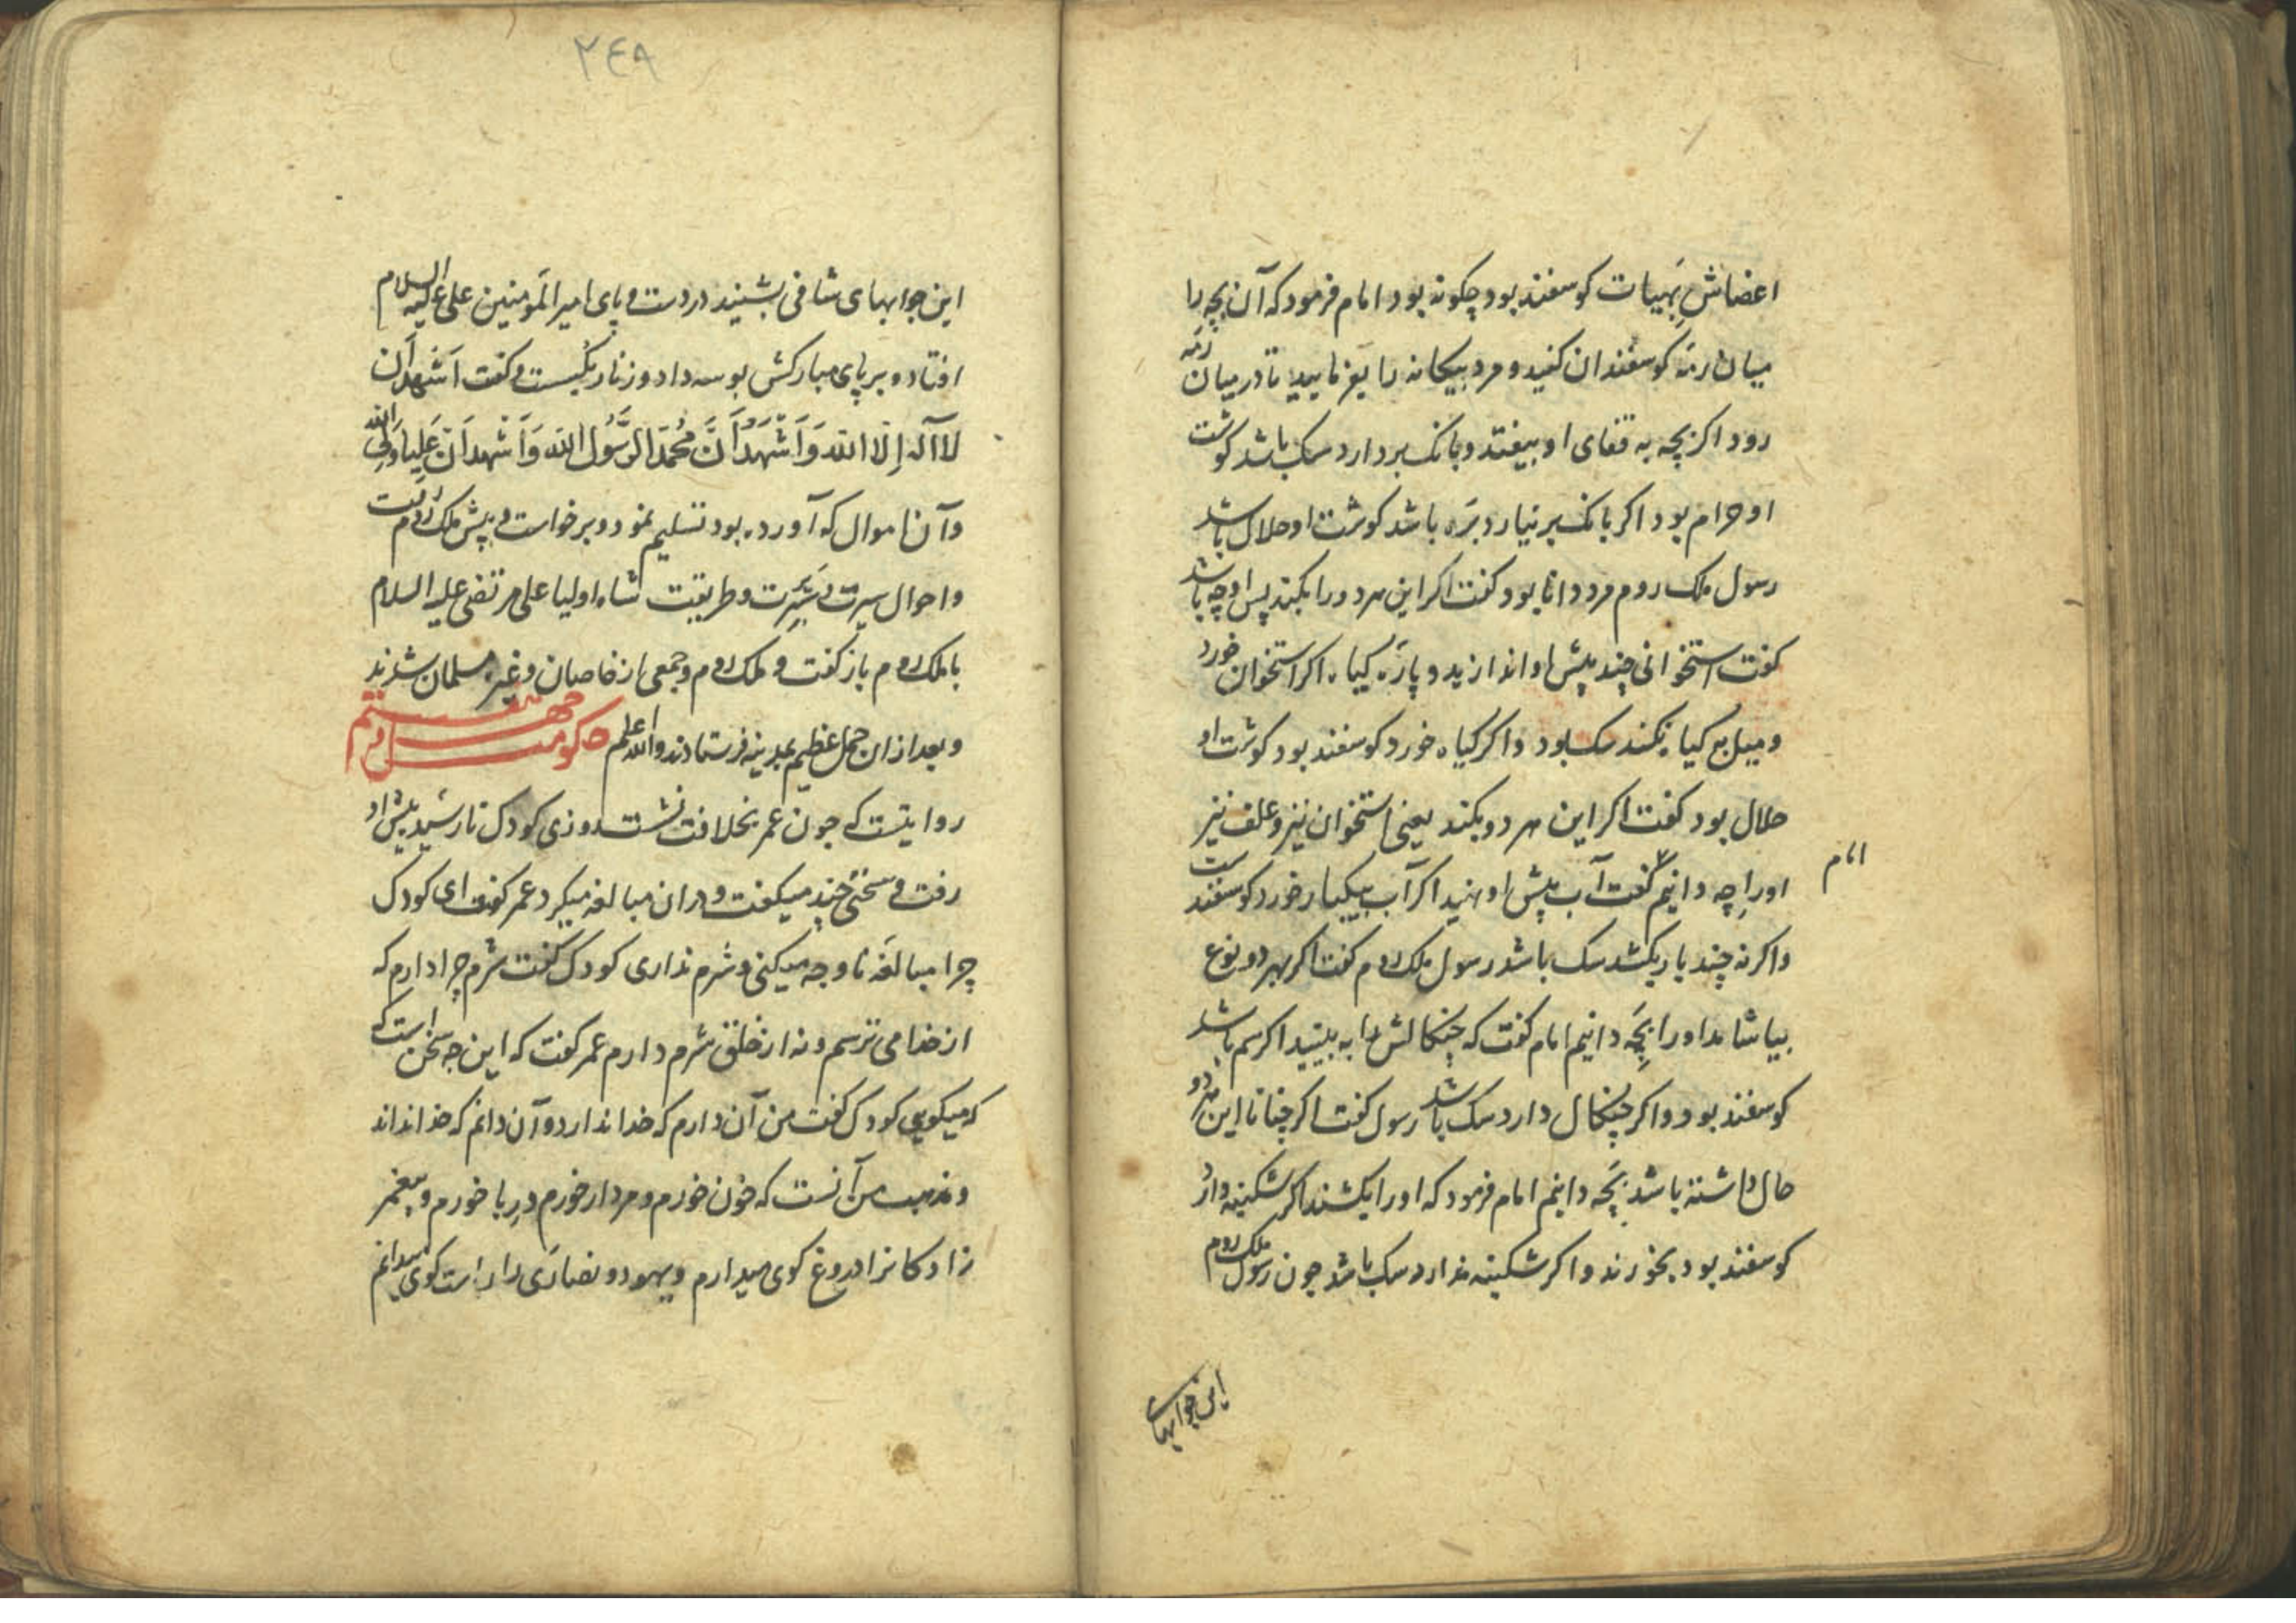 اعضاش بهیات کوسفند بود چکونه بود امام فرمود که آن بچه را
میان رمه کوسفندان کنید و مرد بیکانه را بفرمایید تا در میان رمه
رود اکر بچه به قفای او بیفتد و بانک بردارد سک باشد کوشت
او حرام بود اکر بانک برنیارد بره باشد کوشت او حلال باشد
رسول ملک روم مرد دانا بود کفت اکر این هر دو را بکند پس او چه باشد
کفت استخوانی چند پیش او اندازید و پاره کیاه اکر استخوان خورد
و میل به کیاه نکند سک بود و اکر کیاه خورد کوسفند بود کوشت او
حلال بود کفت اکر این هر دو بکند یعنی استخوان نیز و علف نیز
اورا چه دانیم کفت آب پیش او نهید اکر آب بیکبار خورد کوسفند ست
امام
واکر نه چند بار بکشد سک باشد رسول ملک روم کفت اکر بهر دو نوع
بیاشامد اورا بچه دانیم امام کفت که چنکالش را به بینید اکر سم باشد
کوسفند بود و اکر چنکال دارد سک باشد رسول کفت اکر چنانا این هر دو
حال داشته باشد بچه دانیم امام فرمود که اورا بکشند اکر شکنبه دارد
کوسفند بود بخورند و اکر شکنبه ندارد سک باشد چون رسول ملک روم
این جوابهای
۲٤۹
این جوابهای شافی بشنید در دست و پای امیر المومنین علی علیه السلام
افتاد و بر پای مبارکش بوسه داد و زنار بکسست و کفت اشهد ان
لا اله الا الله و اشهد ان محمدا لرسول الله و اشهد ان علیا ولی الله
و آن اموال که آورده بود تسلیم نمود و برخواست و پیش ملک روم رفت
و احوال سیرت و سریرت و طریقت شاه اولیا علی مرتضی علیه السلام
با ملک روم باز کفت و ملک روم و جمعی از خاصان و غیره مسلمان شدند
و بعد از ان حمل عظیم بمدینه فرستادند والله اعلم حکومت چهل و هشتم
روایتست که چون عمر بخلافت نشست روزی کودک نارسید پیش او
رفت و سخنی چند میکفت و دران مبالغه میکرد عمر کفت ای کودک
چرا مبالغه ناوجه میکنی و شرم نداری کودک کفت شرم چرا دارم که
از خدا می ترسم و نه از خلق شرم دارم عمر کفت که این چه سخن است که
که میکویی کودک کفت من آن دارم که خدا ندارد و آن دانم که خدا نداند
و مذهب من آنست که خون خورم و مردار خورم و ربا خورم و پیغمبر
زادکانرا دروغ کوی میدارم و یهود و نصاری را راست کوی میدانم